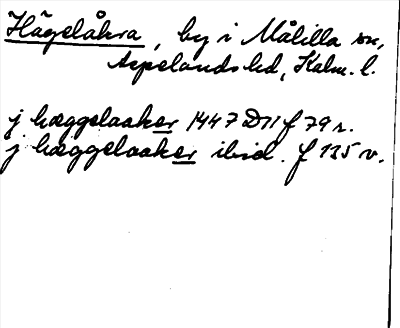 Hägelåkra, by i Målilla sn,
Aspelands hd, Kalm. l.
j hæggelaaker 1447 D11 f 79 r.
j hæggelaaker ibid. f 135 v.